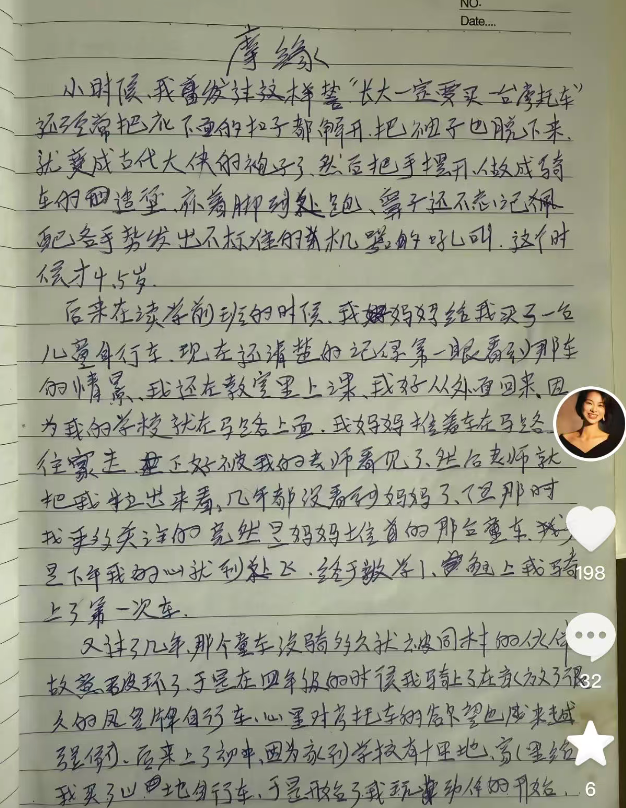 NO.
Date....
摩缘
小时候,我曾发过这样誓"长大一定要买一台摩托车"
还经常把衣下面的扣子都解开.把袖子也脱下来.
就变成古代大侠的袍子了.然后把手摆开.做成骑
车的造型.亦着脚到处跑、鼻子还不忘记佩
配合手势发出不标准的机器的吼叫.这个时
候才4.5岁.
后来在读学前班的时候.我妈妈给我买了一台
儿童自行车.现在还清楚的记得第一眼看到那车
的情景、我还在教室里上课.我妈从外面回来.因
为我的学校就在马路上面.我妈妈推着车在马路
往家走.正好被我的老师看见了.然后老师就
把我叫出来看.几年都没看到妈妈了.但那时
我更多关注的竟然是妈妈推着的那台童车.
是下午我的心就到处飞.终于放学了、晚上我骑
上了第一次车.
又过了几年.那个童车没骑多久就被同村的伙伴
故意破坏了.于是在四年级的时候我骑上了在家放了很
久的凤凰牌自行车.心里对摩托车的渴望也越来越
强烈.后来上了初中.因为家到学校有十里地.家里给
我买了山地自行车.于是开始了我玩动作的开始.
198
32
6